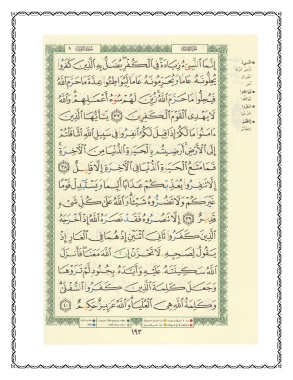 الجزء العاشر
سورة التوبة ٩
إِنَّمَا ٱلنَّسِيٓءُ زِيَادَةٌ فِي ٱلۡكُفۡرِۖ يُضَلُّ بِهِ ٱلَّذِينَ كَفَرُواْ
يُحِلُّونَهُۥ عَامٗا وَيُحَرِّمُونَهُۥ عَامٗا لِّيُوَاطِـُٔواْ عِدَّةَ مَا حَرَّمَ ٱللَّهُ
فَيُحِلُّواْ مَا حَرَّمَ ٱللَّهُۚ زُيِّنَ لَهُمۡ سُوٓءُ أَعۡمَٰلِهِمۡۗ وَٱللَّهُ
لَا يَهۡدِي ٱلۡقَوۡمَ ٱلۡكَٰفِرِينَ ٣٧ يَٰٓأَيُّهَا ٱلَّذِينَ
ءَامَنُواْ مَا لَكُمۡ إِذَا قِيلَ لَكُمُ ٱنفِرُواْ فِي سَبِيلِ ٱللَّهِ ٱثَّاقَلۡتُمۡ
إِلَى ٱلۡأَرۡضِۚ أَرَضِيتُم بِٱلۡحَيَوٰةِ ٱلدُّنۡيَا مِنَ ٱلۡأٓخِرَةِۚ
فَمَا مَتَٰعُ ٱلۡحَيَوٰةِ ٱلدُّنۡيَا فِي ٱلۡأٓخِرَةِ إِلَّا قَلِيلٌ ٣٨
إِلَّا تَنفِرُواْ يُعَذِّبۡكُمۡ عَذَابًا أَلِيمٗا وَيَسۡتَبۡدِلۡ قَوۡمًا
غَيۡرَكُمۡ وَلَا تَضُرُّوهُ شَيۡـٔٗاۗ وَٱللَّهُ عَلَىٰ كُلِّ شَيۡءٖ
قَدِيرٌ ٣٩ إِلَّا تَنصُرُوهُ فَقَدۡ نَصَرَهُ ٱللَّهُ إِذۡ أَخۡرَجَهُ
ٱلَّذِينَ كَفَرُواْ ثَانِيَ ٱثۡنَيۡنِ إِذۡ هُمَا فِي ٱلۡغَارِ إِذۡ
يَقُولُ لِصَٰحِبِهِۦ لَا تَحۡزَنۡ إِنَّ ٱللَّهَ مَعَنَاۖ فَأَنزَلَ
ٱللَّهُ سَكِينَتَهُۥ عَلَيۡهِ وَأَيَّدَهُۥ بِجُنُودٖ لَّمۡ تَرَوۡهَا
وَجَعَلَ كَلِمَةَ ٱلَّذِينَ كَفَرُواْ ٱلسُّفۡلَىٰۗ
وَكَلِمَةُ ٱللَّهِ هِيَ ٱلۡعُلۡيَاۗ وَٱللَّهُ عَزِيزٌ حَكِيمٌ ٤٠
١٩٣